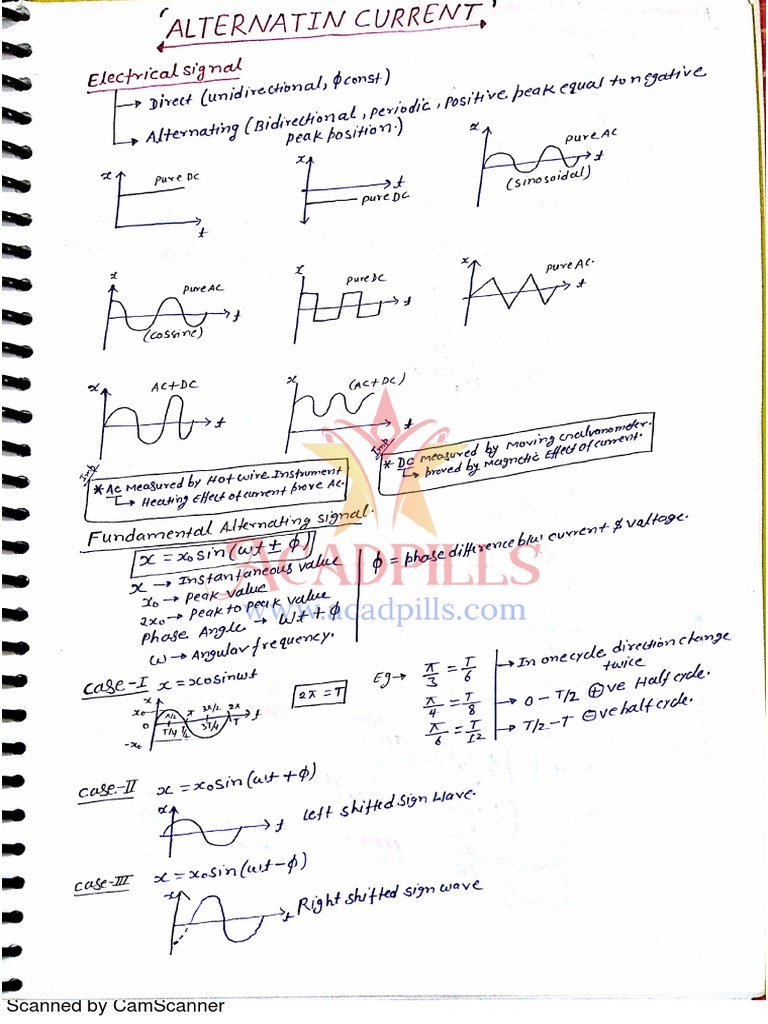 'ALTERNATIN CURRENT'
Electrical signal
→ Direct (unidirectional, ϕ const)
→ Alternating (Bidirectional, periodic, Positive peak equal to negative
peak position.)
x pure DC t
x t pure DC
x pure AC t
(sinosoidal)
x pure AC t
(cossine)
x pure DC t
x pure AC. t
x AC+DC t
x (AC+DC) t
Imp
* AC measured by Hot wire Instrument
↳ Heating Effect of current prove AC.
Imp
* DC measured by Moving Gnalvanometer.
↳ proved by Magnetic Effect of current.
Fundamental Alternating signal.
x = x₀ sin(ωt ± ϕ)
x → Instantaneous value
x₀ → Peak value
2x₀ → Peak to peak value
Phase Angle → ωt + ϕ
ω → Angular frequency.
ϕ = phase difference b/w current & voltage.
ACADPILLS
www.acadpills.com
Case-I x = x₀ sinωt
x
x₀ π/2 π 3π/2 2π t
0 T/4 T/2 3T/4 T
-x₀
2π = T
Eg → π/3 = T/6
π/4 = T/8
π/6 = T/12
→ In one cycle direction change
twice
→ 0 – T/2 ⊕ve Half cycle.
→ T/2 – T ⊖ve half cycle.
Case-II x = x₀ sin(ωt + ϕ)
x t Left shifted sign wave.
Case-III x = x₀ sin(ωt – ϕ)
x t Right shifted sign wave
Scanned by CamScanner